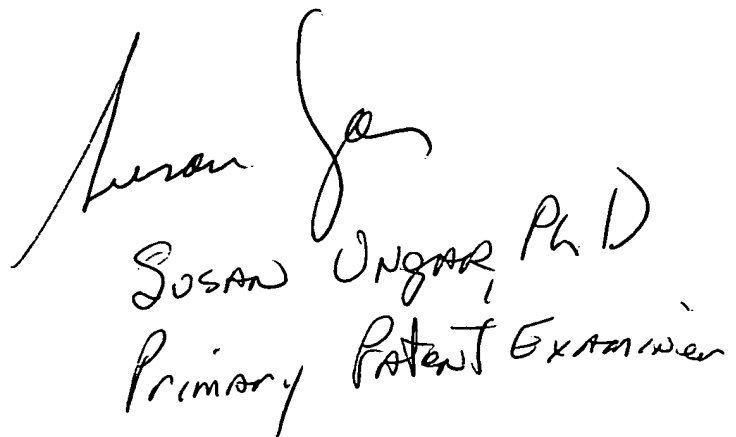 Susan
SUSAN UNGAR, Ph D
Primary PATENT EXAMINER